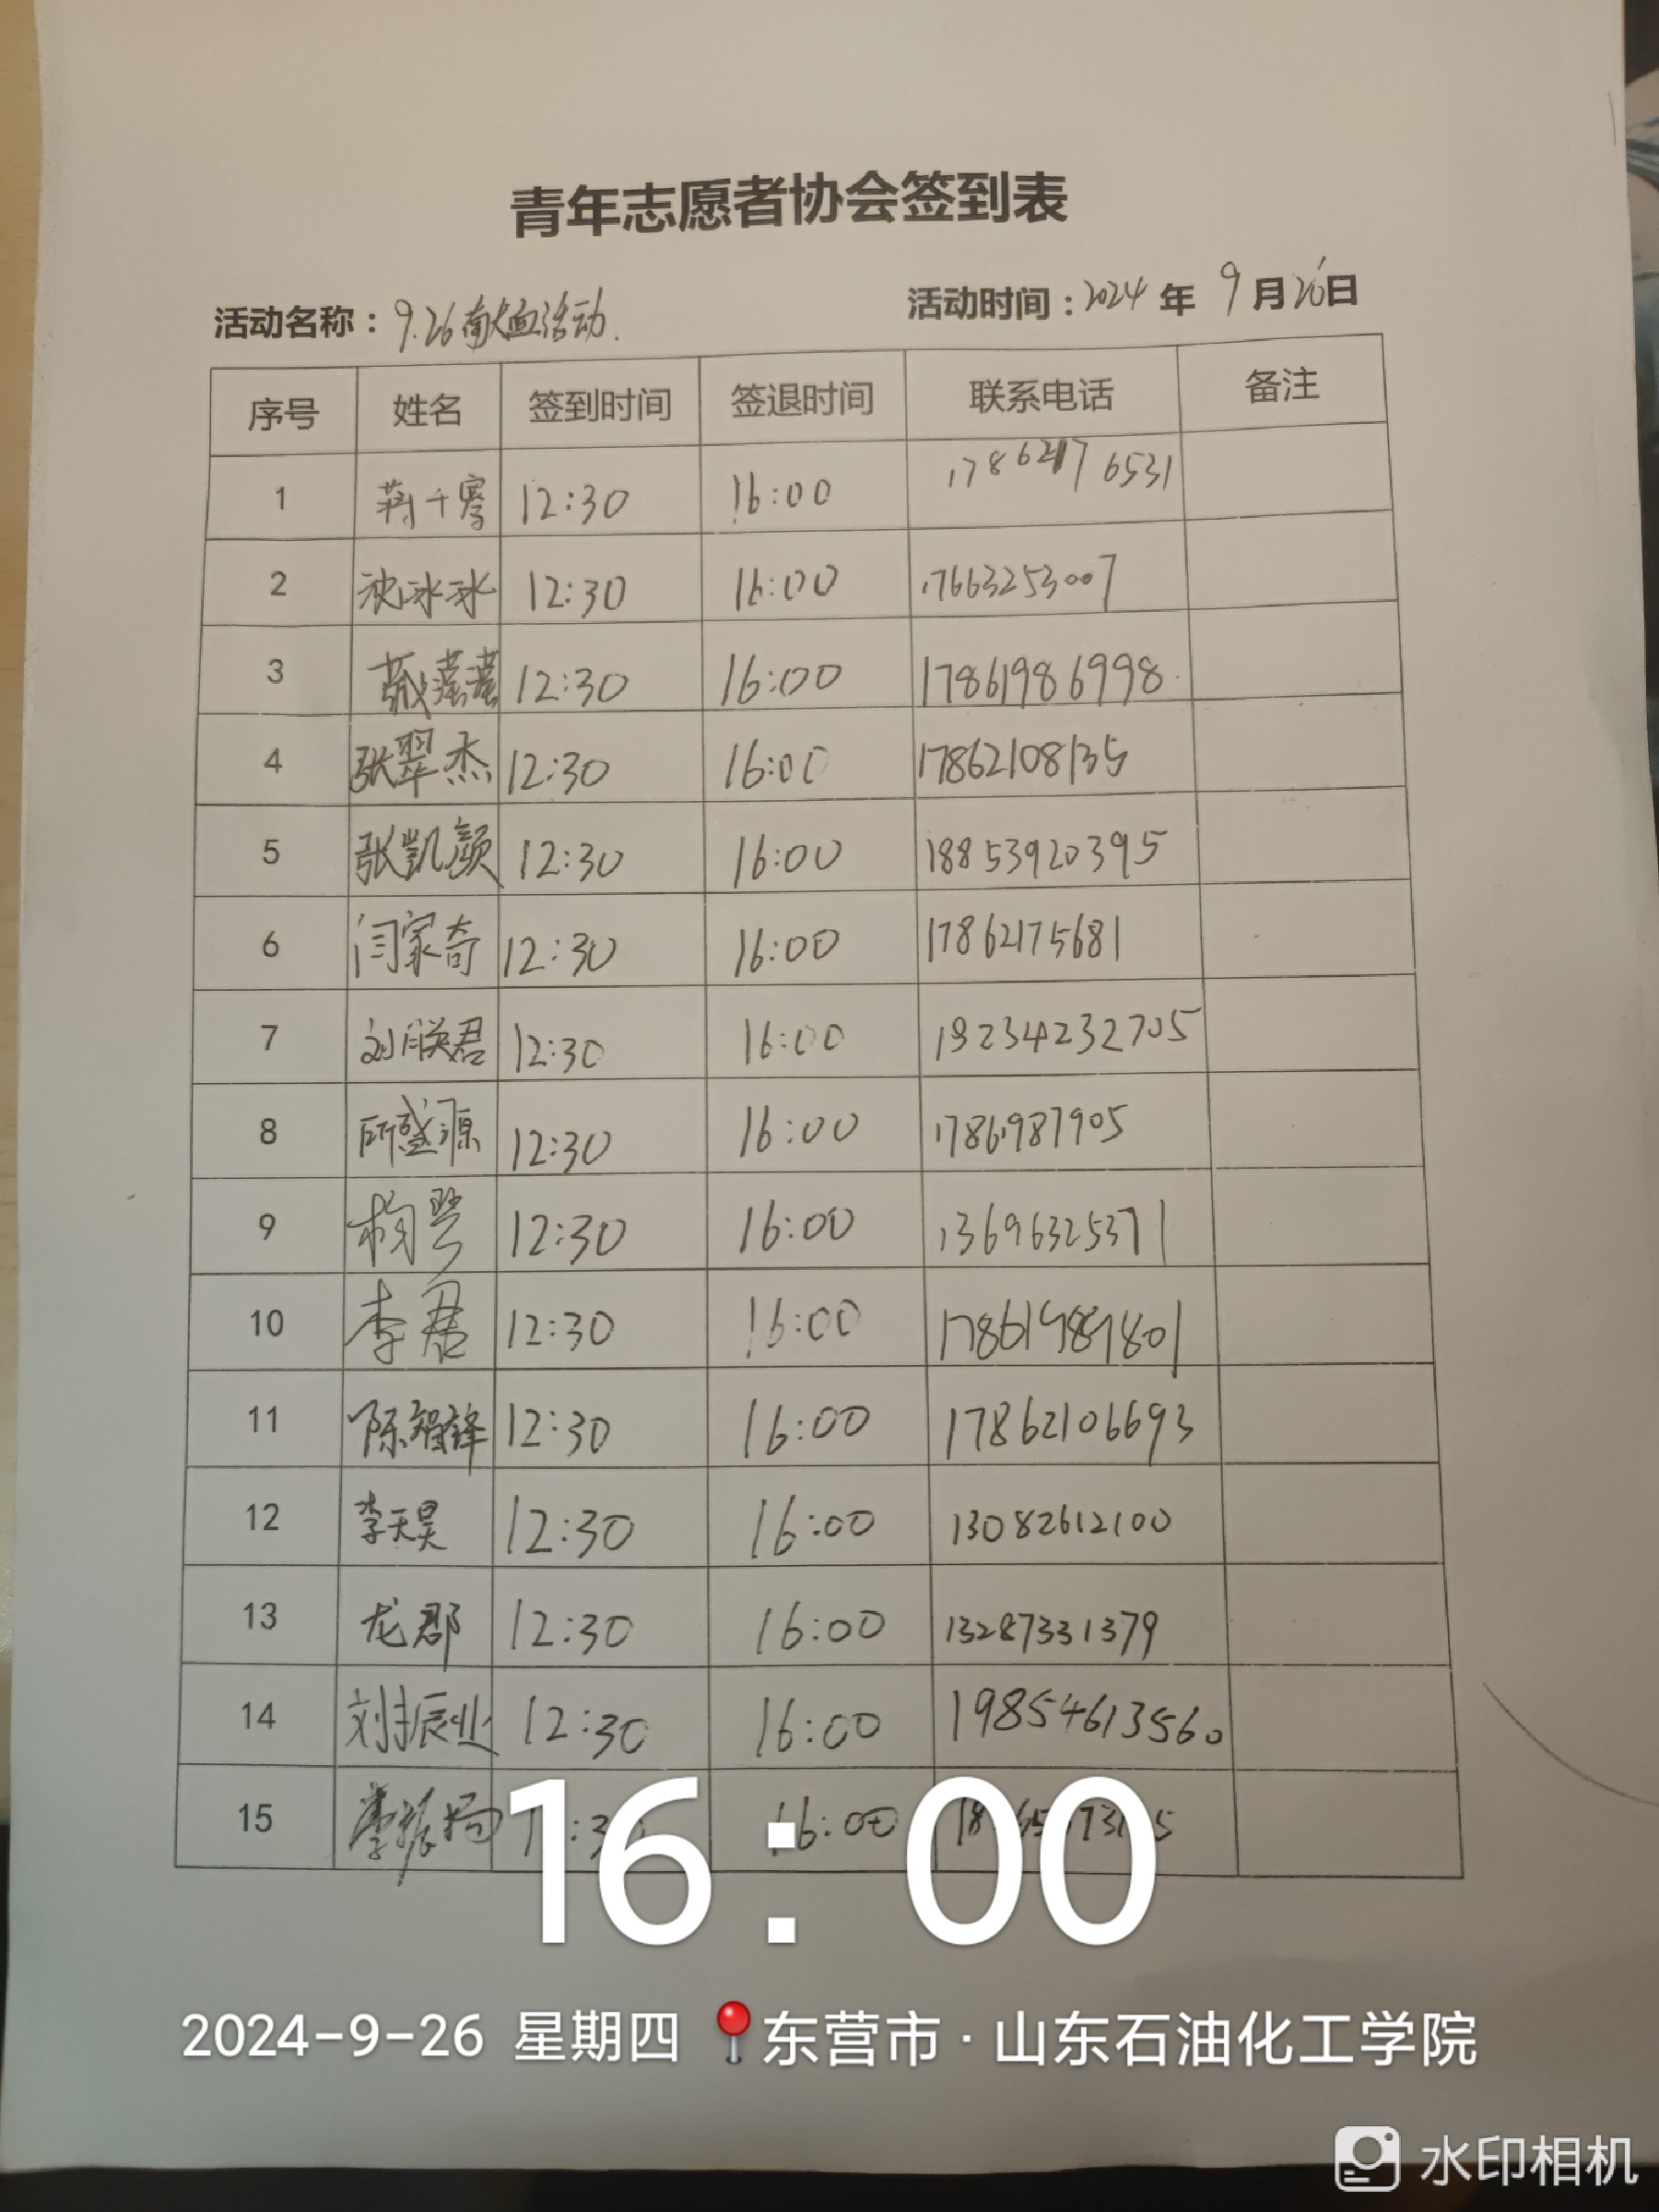 青年志愿者协会签到表
活动名称：9.26献血活动.
活动时间：2024年 9月26日
序号 姓名 签到时间 签退时间 联系电话 备注
1 蒋千骞 12:30 16:00 17862176531
2 冰冰 12:30 16:00 17663253007
3 12:30 16:00 17861986998
4 张翠杰 12:30 16:00 17862108135
5 张凯颜 12:30 16:00 18853920395
6 闫家奇 12:30 16:00 17862175681
7 刘朕君 12:30 16:00 19234232705
8 盛源 12:30 16:00 1786987905
9 12:30 16:00 13696325371
10 李君 12:30 16:00
11 陈智锋 12:30 16:00 17862106693
12 李天昊 12:30 16:00 13082612100
13 龙郡 12:30 16:00 13287331379
14 刘振业 12:30 16:00 19854613560
15 李振 16:00
16:00
2024-9-26 星期四 东营市·山东石油化工学院
水印相机